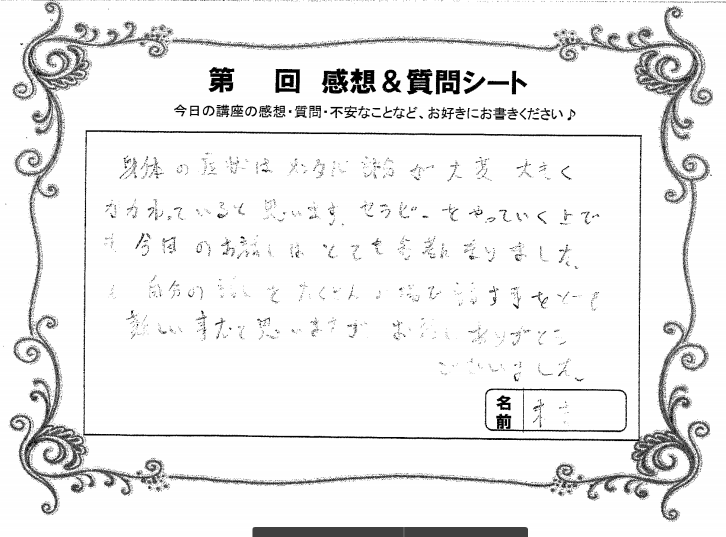 第　回 感想＆質問シート
今日の講座の感想・質問・不安なことなど、お好きにお書きください♪
身体の症状は メンタル部分が大変 大きく
かかわっていると思います。セラピーをやっていく上で
も 今日のお話しは とても参考になりました。
自分の話しをたくさんの場で話す事もとても
難しい事だと思いますが お話しありがとう
ございました。
名前